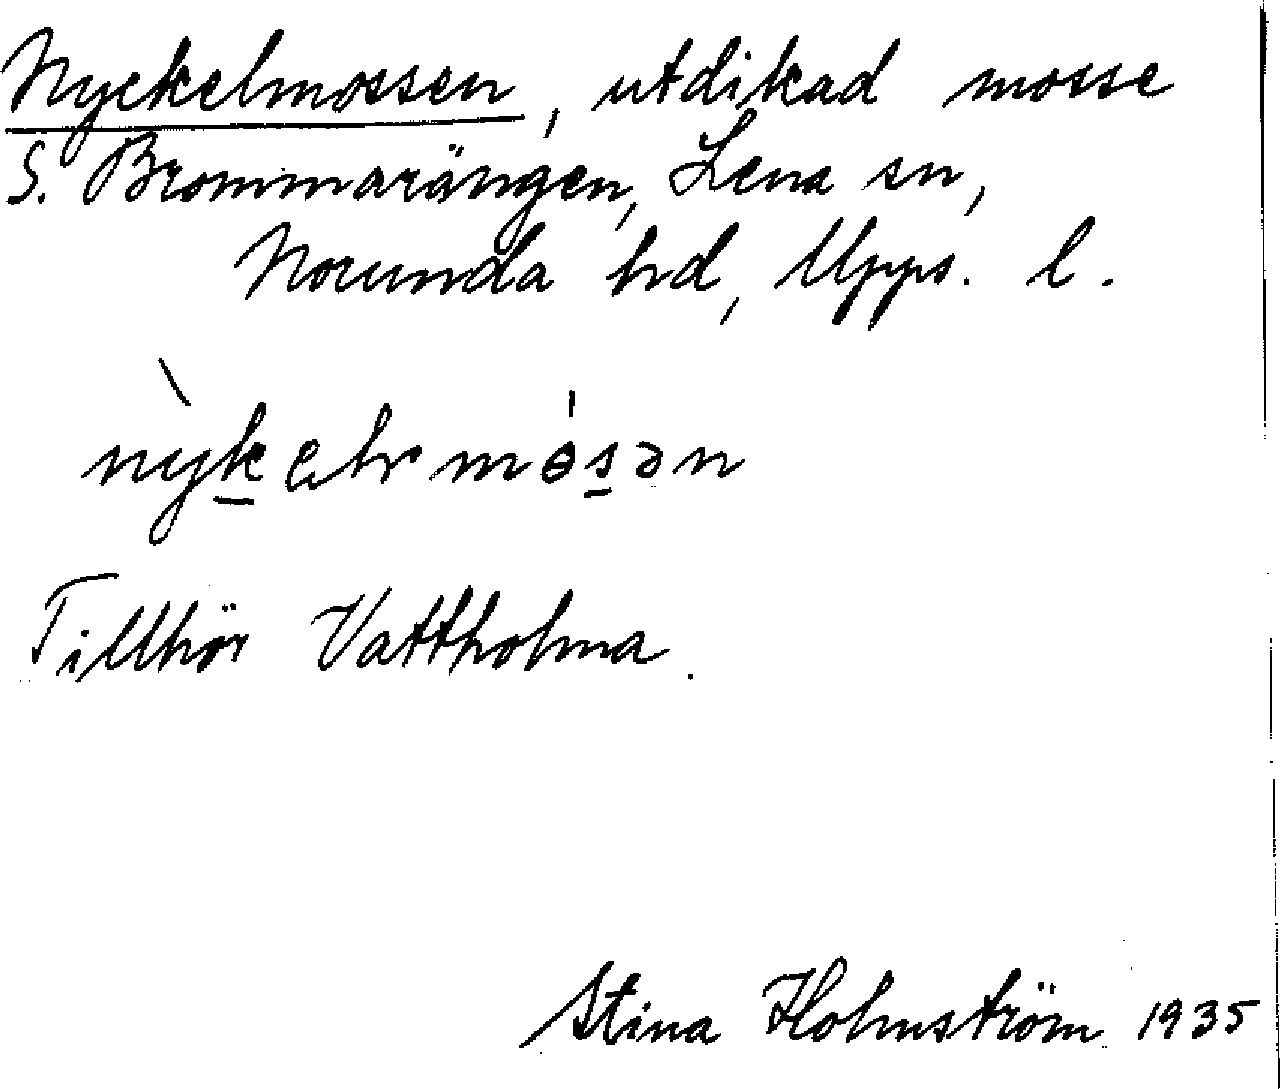 Nyckelmossen, utdikad mosse
S. Brommarängen, Lena sn,
Norunda hd, Upps. l.
Tillhör Vattholma.
Stina Holmström 1935